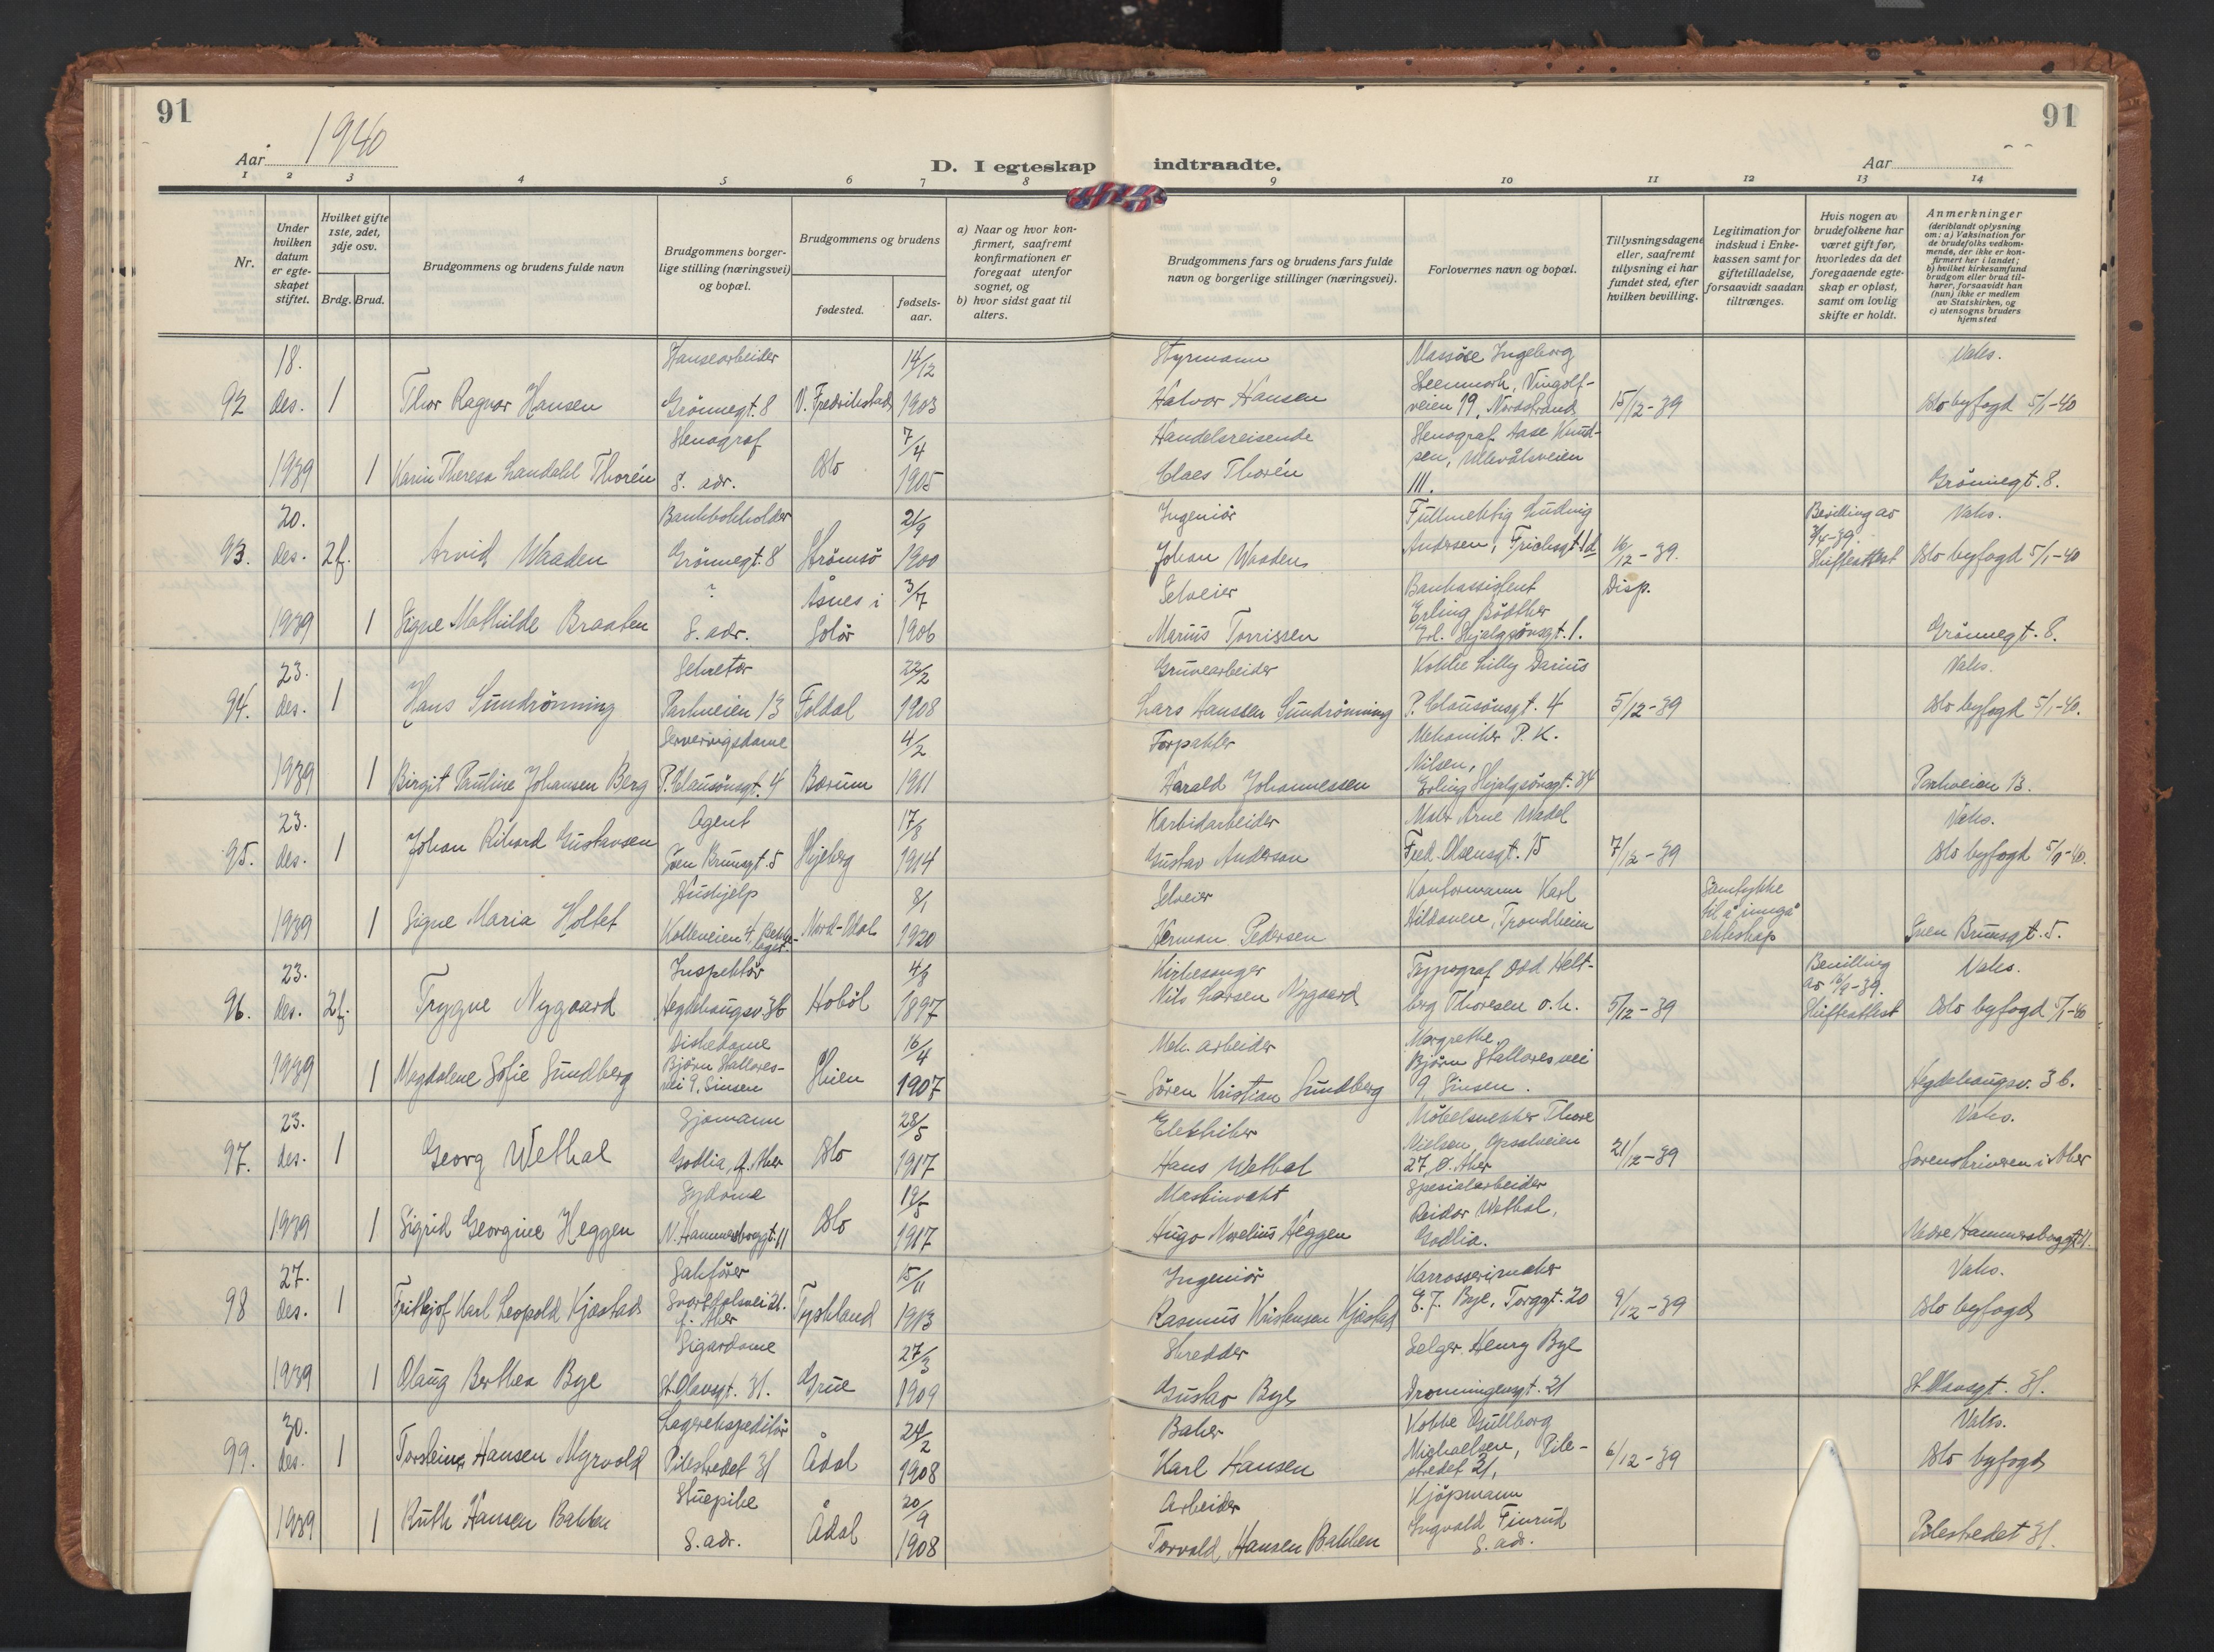 91
91
Aar 1940
D. I egteskap indtraadte.
Aar
1 2 3 4 5 6 7 8 9 10 11 12 13 14
Nr.
Under hvilken datum er egteskapet stiftet.
Hvilket gifte 1ste, 2det, 3dje osv.
Brdg. Brud.
Brudgommens og brudens fulde navn
Brudgommens borgerlige stilling (næringsvei) og bopæl.
Brudgommens og brudens
fødested.
fødselsaar.
a) Naar og hvor konfirmert, saafremt konfirmationen er foregaat utenfor sognet, og
b) hvor sidst gaat til alters.
Brudgommens fars og brudens fars fulde navn og borgerlige stillinger (næringsvei).
Forlovernes navn og bopæl.
Tillysningsdagene eller, saafremt tillysning ei har fundet sted, efter hvilken bevilling.
Legitimation for indskud i Enkekassen samt for giftetilladelse, forsaavidt saadan tiltrænges.
Hvis nogen av brudefolkene har været gift før, hvorledes da det foregaaende egteskap er opløst, samt om lovlig skifte er holdt.
Anmerkninger (deriblandt oplysning om: a) Vaksination for de brudefolks vedkommende, der ikke er konfirmert her i landet; b) hvilket kirkesamfund brudgom eller brud tilhører, forsaavidt han (hun) ikke er medlem av Statskirken, og c) utensogns bruders hjemsted
92 18. des. 1 Thor Ragnar Hansen Grönnegt. 8 V. Fredrikstad 14/12 1903
Styrmann Halvor Hansen
Massöse Ingeborg Steenmark, Vingolfveien 19, Nordstrand
15/12-39
Vaks. Oslo byfogd 5/1-40
1939 1 Karin Theresa Landahl Thorén Stenograf S. adr. Oslo 7/4 1905
Handelsreisende Claes Thorén
Stenograf Aase Knudsen, Ullevålsveien 111.
Grönnegt. 8.
93. 20. des. 2f. Arvid Waaden Bankbokholder Grönnegt. 8 Strömsö 21/9 1900
Ingeniör Johan Waaden
Fullmektig Ludvig Andersen, Frichsgt 1d
16/12-39. Disp.
Bevilling av Skifteattest
Vaks. Oslo byfogd 5/1-40
1939 1 Signe Mathilde Braaten ? S. adr. Åsnes i Solör 3/7 1906
Selveier Marius Torrissen
Bankassistent Erling Bödtker Erl. Skjalgsönsgt. 1.
Grönnegt. 8.
94. 23. des. 1 Hans Sundrönning Sekretær Parkveien 13 Foldal 22/2 1908
Gruvearbeider Lars Hanssen Sundrönning
Kokke Lilly Darius P. Clausönsgt. 4
5/12-39
Vaks. Oslo byfogd 5/1-40.
1939 1 Birgit Pauline Johansen Berg Serveringsdame P. Clausönsgt. 4 Bærum 4/2 1911
Forpakter Harald Johannessen
Mekaniker P. K. Nilsen, Erling Skjalgsönsgt. 34
Parkveien 13.
95. 23. des. 1 Johan Rikard Gustavsen Agent Sven Brunsgt. 5 Skjeberg 17/8 1914
Karbidarbeider Gustav Anderson
Maler Arne Wadel Fred. Olsensgt. 15
7/12-39
Vaks. Oslo byfogd 5/1-40.
1939 1 Signe Maria Holtet Hushjelp Kolleveien 4, Bekkelaget. Nord-Odal 8/1 1920
Selveier Herman Pedersen
Kontormann Karl Hildonen, Trondheim
Samtykke til å inngå ekteskap
Sven Brunsgt. 5.
96. 23. des. 2f. Trygve Nygaard Inspektör Hegdehaugsv. 3b Hoböl 4/8 1897
Kirkesanger Nils Larsen Nygaard
Typograf Odd Heltberg Thoresen o. h.
5/12-39
Bevilling av Skifteattest
Vaks. Oslo byfogd 5/1-40
1939 1 Magdalene Sofie Sundberg Diskedame Björn Stallaresvei 9, Sinsen Skien 16/4 1907
Mek. arbeider Sören Kristian Sundberg
Margrethe, Björn Stallares vei 9, Sinsen.
Hegdehaugsv. 3 b.
97. 23. des. 1 Georg Wethal Sjömann Godlia, Ö. Aker Oslo 28/5 1917
Elektriker Hans Wethal
Möbelsnekker Thore Nielsen, Opsalveien 27, Ö. Aker
21/12-39
Vaks. Sorenskriveren i Aker
1939 1 Sigrid Georgine Heggen Sydame N. Hammersborggt. 11 Oslo 19/5 1917
Maskinvakt Hugo Norelius Heggen
Spesialarbeider Reidar Wethal, Godlia.
Nedre Hammersborggt 11.
98 27. des. 1 Frithjof Karl Leopold Kjæstad Sakförer Svartdalsvei 21. Ö. Aker Tyskland 15/11 1913
Ingeniör Rasmus Kristensen Kjæstad
Karrosserimaker E. J. Bye, Torggt. 20
9/12-39
Vaks. Oslo byfogd
1939 1 Olaug Berthea Bye Sigardame St. Olavsgt. 31. Grue 27/3 1909
Skredder Gustav Bye
Selger Henry Bye Dronningensgt. 21
St. Olavsgt. 31.
99. 30. des. 1 Torstein Hansen Myrvold Lagerekspeditör Pilestredet 31 Ådal 24/2 1908
Baker Karl Hansen
Kokke Gullborg Michaelsen, Pilestredet 31,
6/12-39
Vaks. Oslo byfogd
1939 1 Ruth Hansen Bakken Stuepike S. adr. Ådal 20/9 1908
Arbeider Torvald Hansen Bakken
Kjöpmann Ingvald Finrud S. adr.
Pilestredet 31.